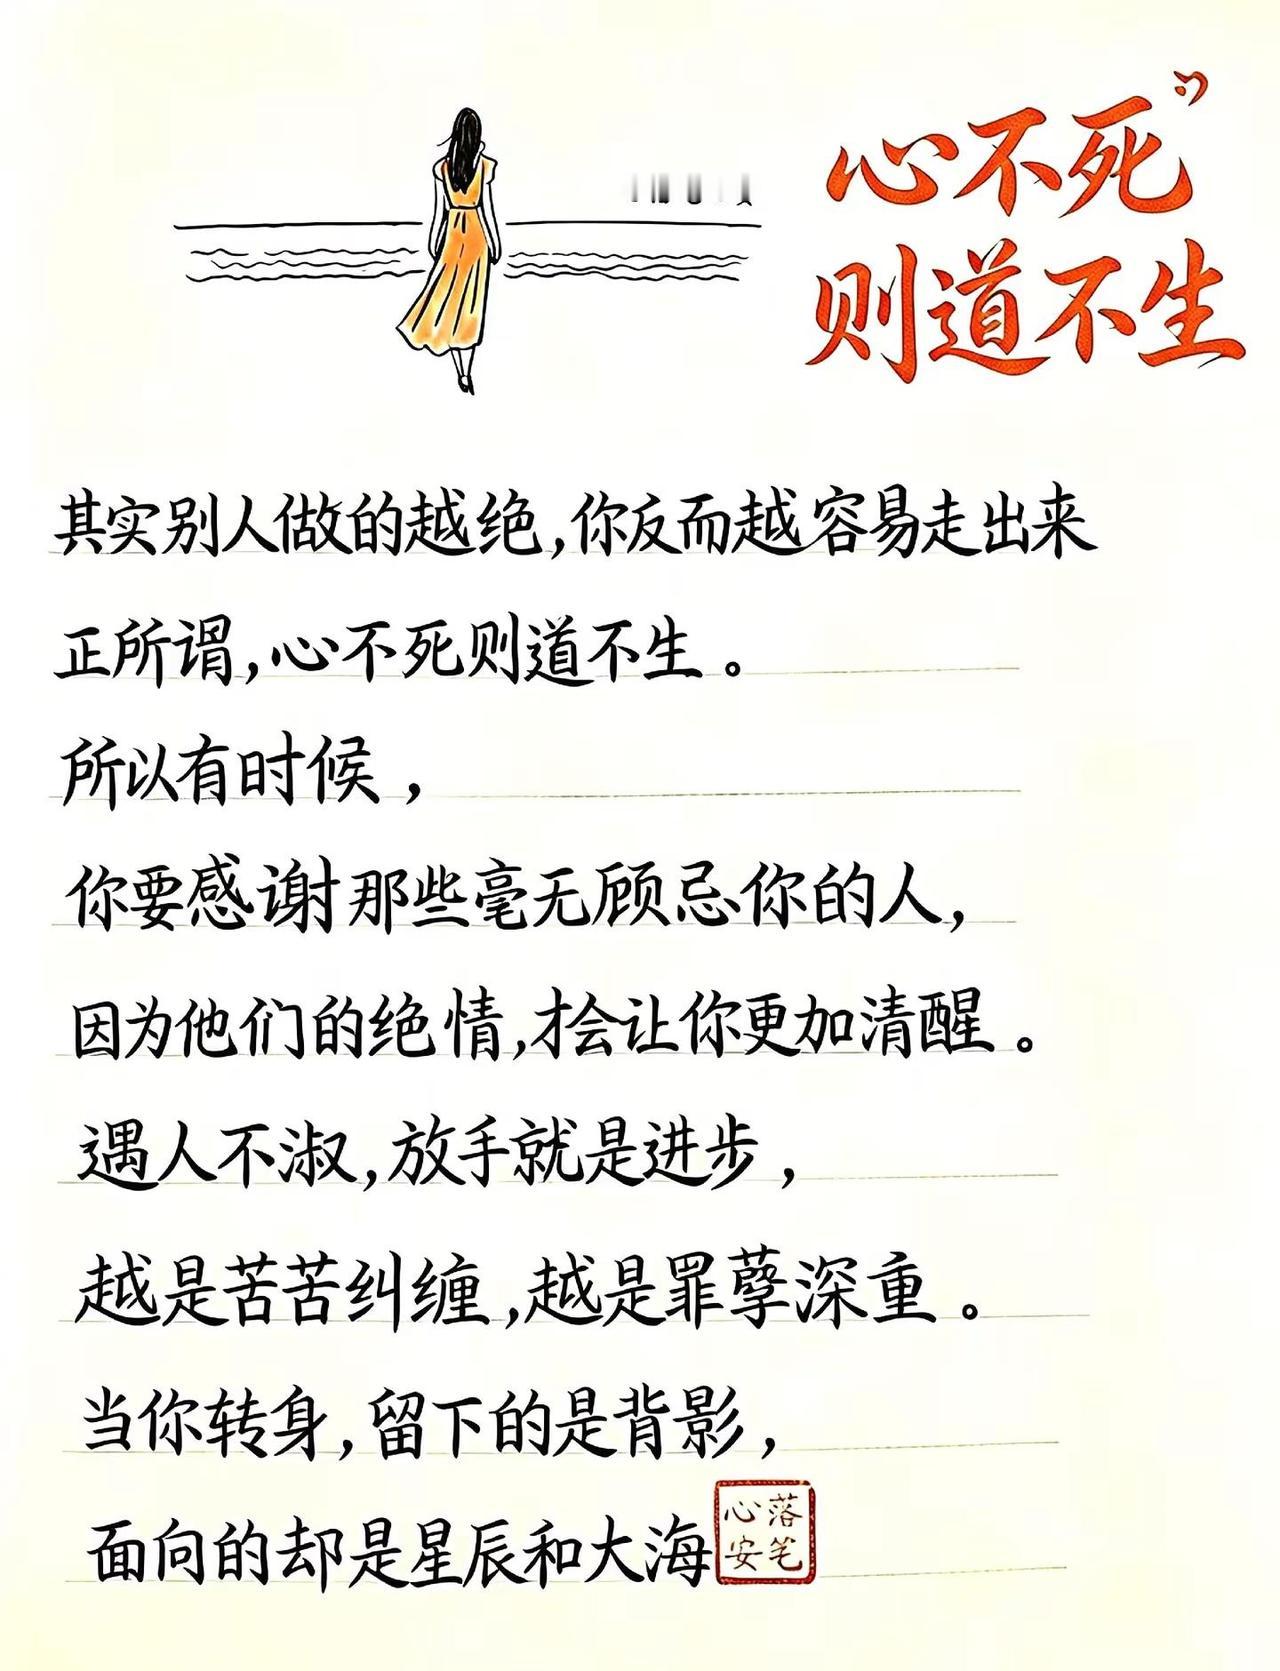 心不死
则道不生
其实别人做的越绝,你反而越容易走出来
正所谓,心不死则道不生。
所以有时候,
你要感谢那些毫无顾忌你的人,
因为他们的绝情,才会让你更加清醒。
遇人不淑,放手就是进步,
越是苦苦纠缠,越是罪孽深重。
当你转身,留下的是背影,
面向的却是星辰和大海
落笔
心安